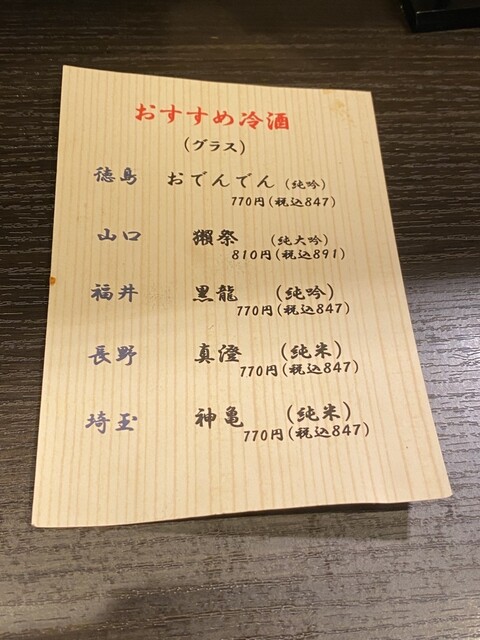 おすすめ冷酒
(グラス)
徳島 おでんでん (純吟)
770円(税込847)
山口 獺祭 (純大吟)
810円(税込891)
福井 黒龍 (純吟)
770円(税込847)
長野 真澄 (純米)
770円(税込847)
埼玉 神亀 (純米)
770円(税込847)